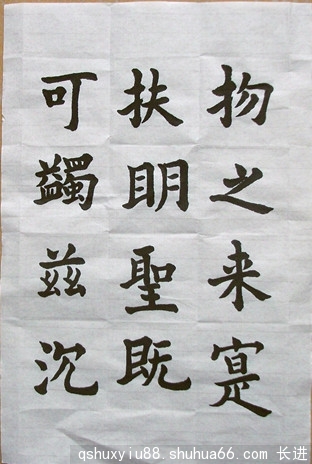 物之来寔
扶眀聖既
可蠲兹沉
qshuxyiu88.shuhua66.com 长进